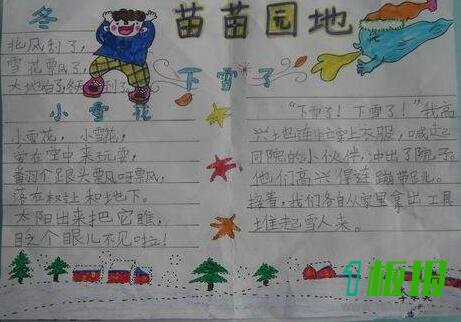 苗苗园地
冬
北风刮了,
雪花飘了,
下雪了
小雪花
小雪花,小雪花,
爱在空中来玩耍,
翻个跟头飘呀飘,
落在树上和地下。
太阳出来把它瞧,
眨个眼儿不见啦!
“下雪了!下雪了!”我高
兴地连忙穿上衣服,喊起
同院的小伙伴,冲出了院子。
他们高兴得连蹦带跳。
接着,我们各自从家里拿出工具
堆起雪人来。
1板报